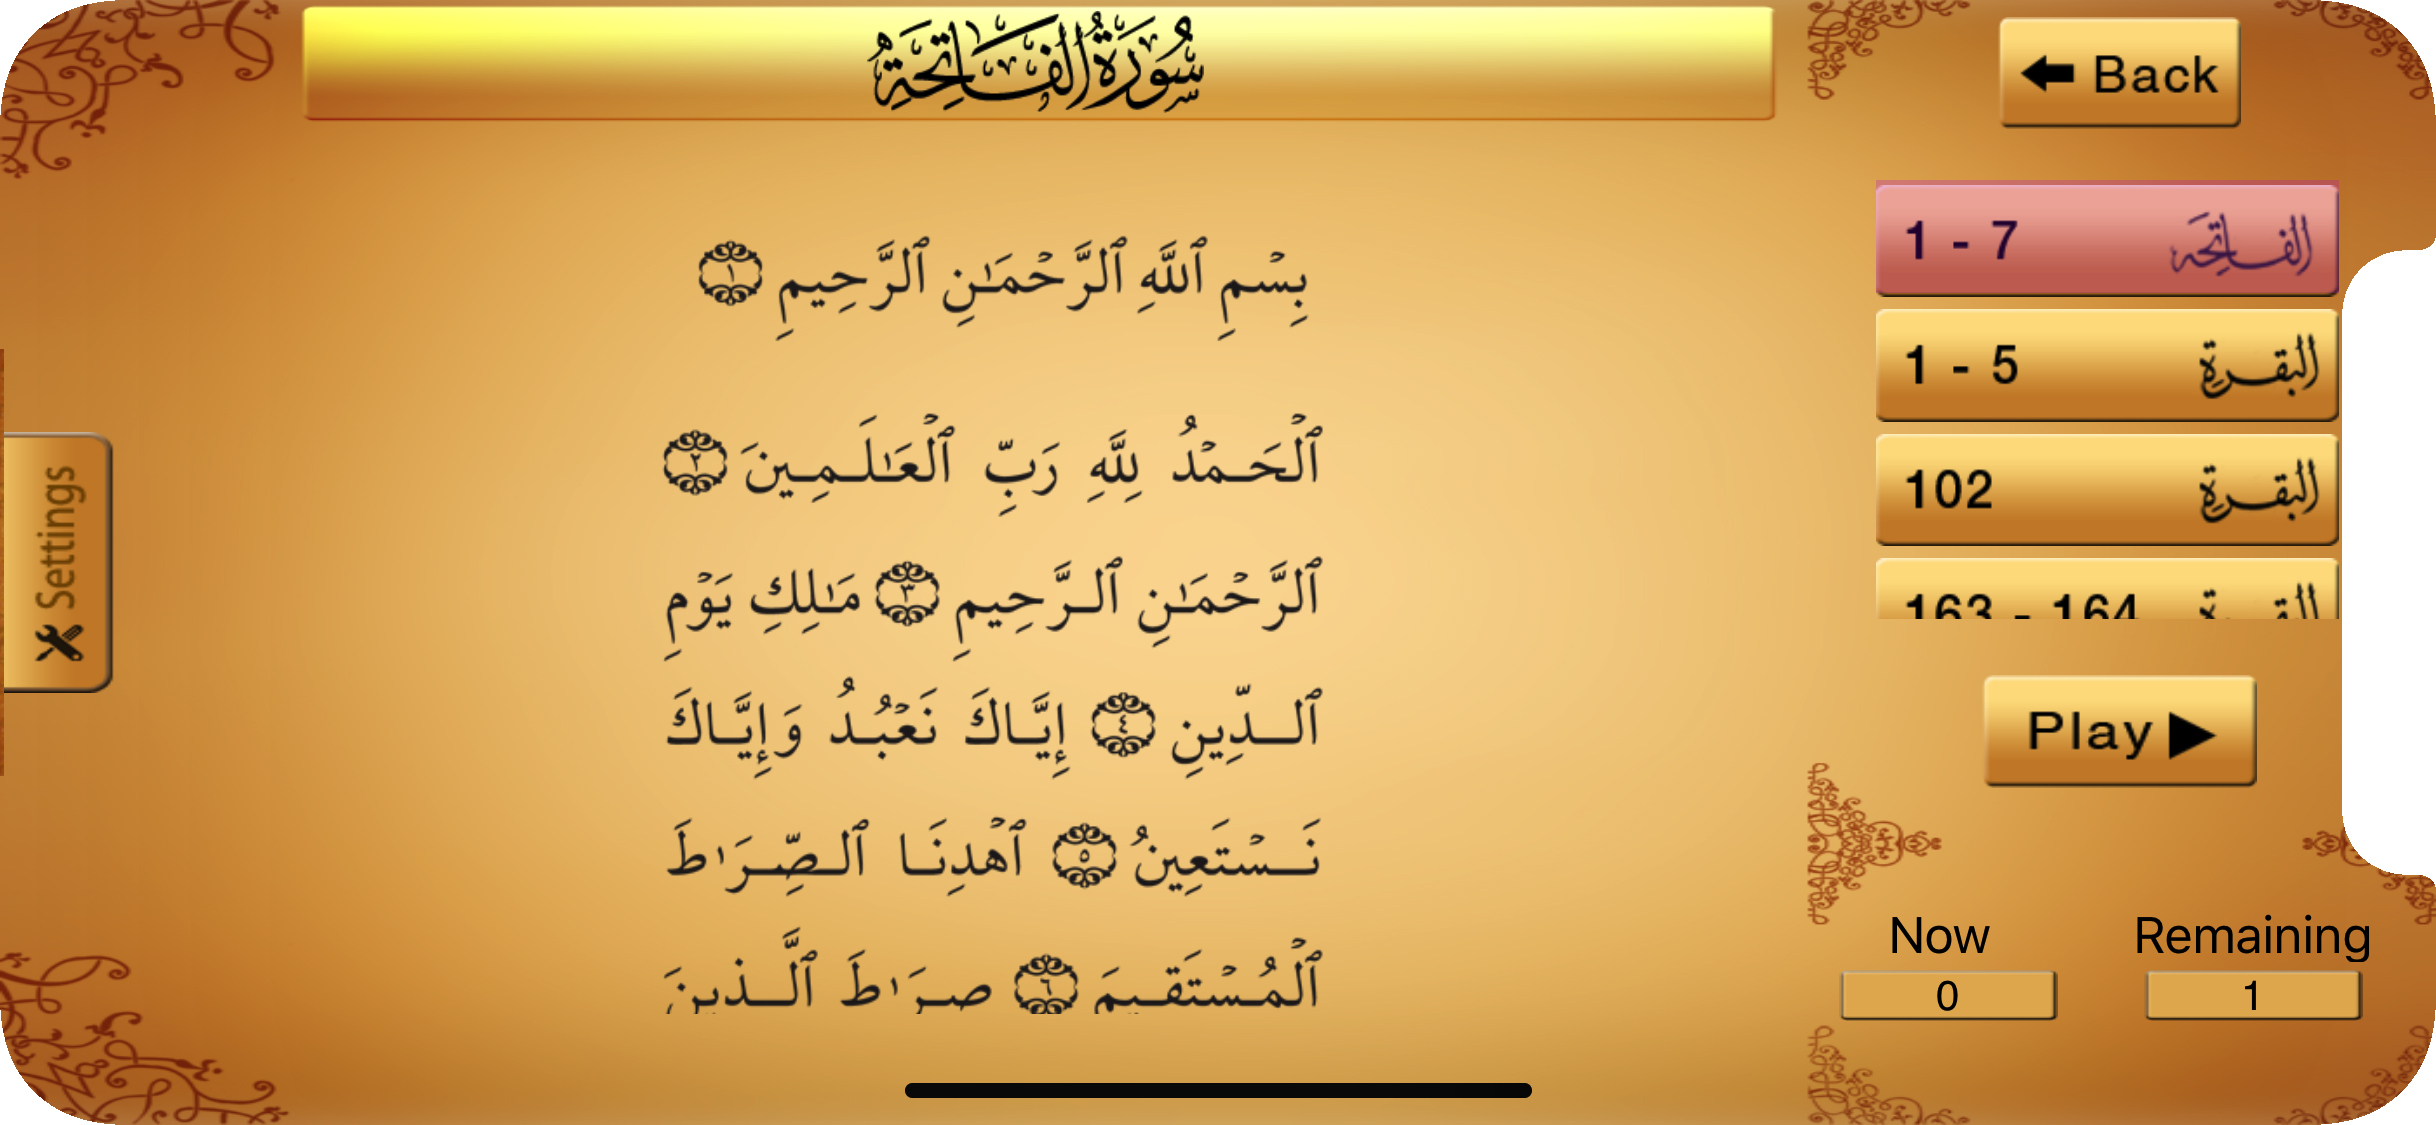 سُورَةُ الفَاتِحَةُ
Back
بِسْمِ ٱللَّهِ ٱلرَّحْمَـٰنِ ٱلرَّحِيمِ ١
ٱلْحَمْدُ لِلَّهِ رَبِّ ٱلْعَـٰلَمِينَ ٢
ٱلرَّحْمَـٰنِ ٱلرَّحِيمِ ٣ مَـٰلِكِ يَوْمِ
ٱلدِّينِ ٤ إِيَّاكَ نَعْبُدُ وَإِيَّاكَ
نَسْتَعِينُ ٥ ٱهْدِنَا ٱلصِّرَٰطَ
ٱلْمُسْتَقِيمَ ٦ صِرَٰطَ ٱلَّذِينَ
Settings
1 - 7 الفاتحة
1 - 5 البقرة
102 البقرة
163 - 164 البقرة
Play
Now Remaining
0 1